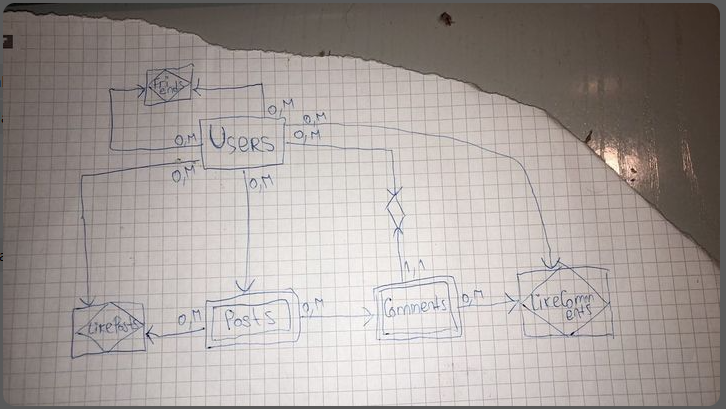 Fri
ends
0,M
0,M
0,M
0,M
Users
0,M
0,M
1,1
LikePosts
0,M
Posts
0,M
Comments
0,M
LikeComm
ents